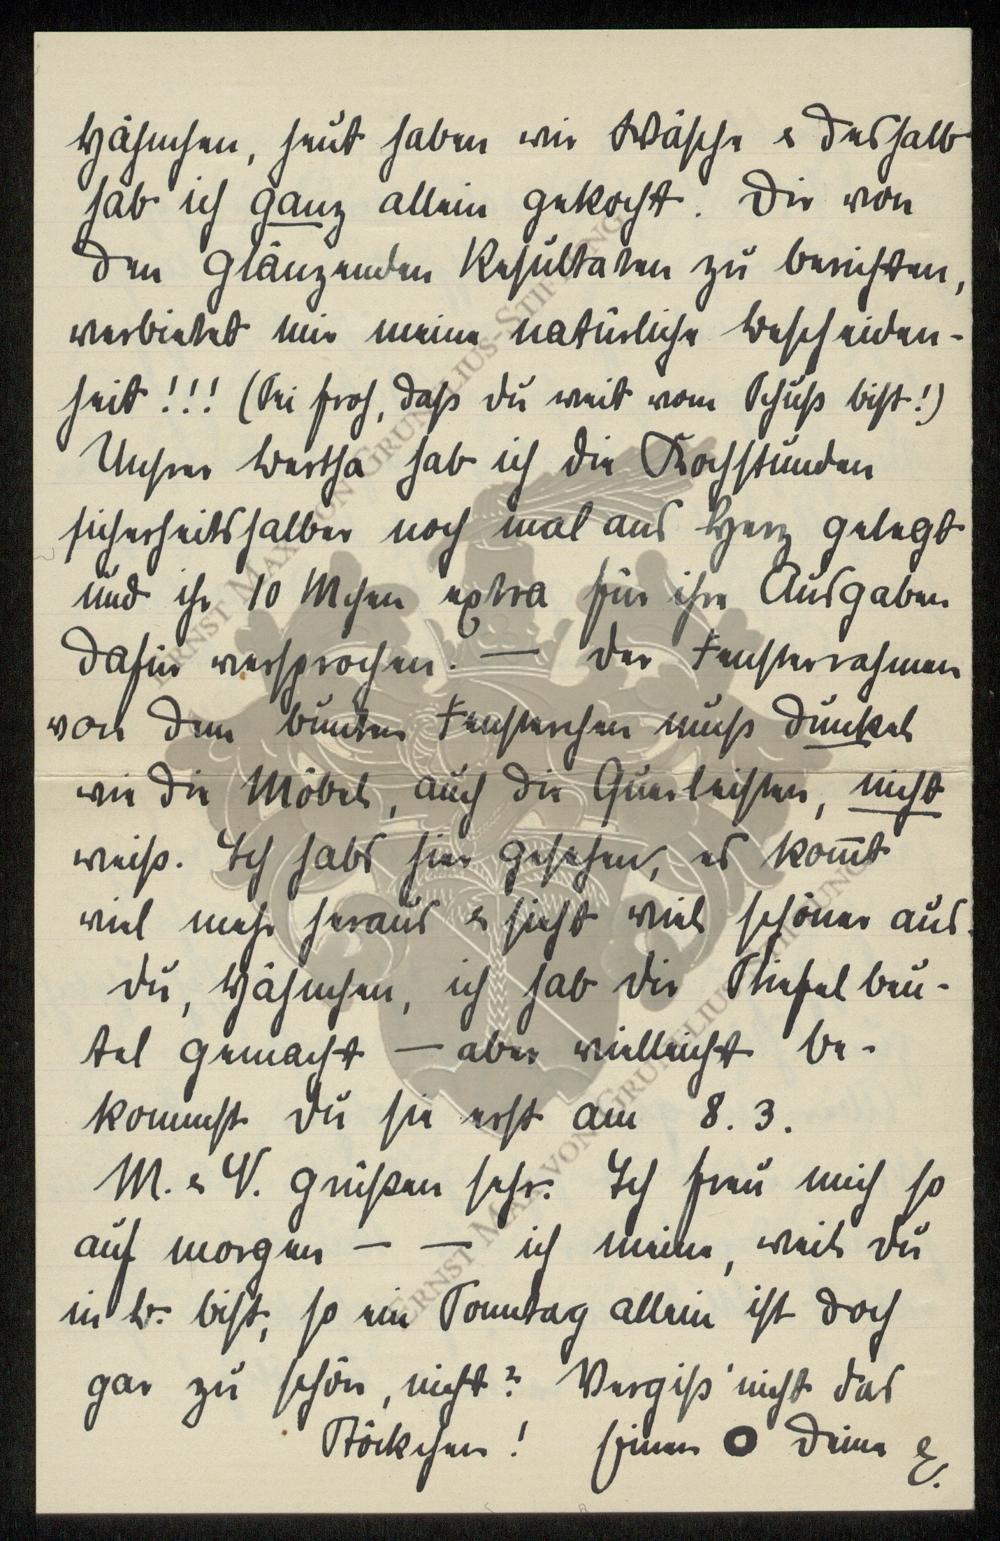 Hähnchen, heut haben wir Wäsche & deshalb
hab ich ganz allein gekocht. Dir von
den glänzenden Resultaten zu berichten,
verbietet mir meine natürliche Bescheiden-
heit!!! (Sei froh, daß du weit vom Schuß bist!)
Unsrer Bertha hab ich die Kochstunden
sicherheitshalber noch mal ans Herz gelegt
und ihr 10 Mchen extra für ihre Ausgaben
dafür versprochen. — Der Fensterrahmen
von dem bunten Fensterchen muß dunkel
wie die Möbel, auch die Querleisten, nicht
weiß. Ich habs hier gesehen, es kom̅t
viel mehr heraus & sieht viel schöner aus.
Du, Hähnchen, ich hab die Stiefelbeu-
tel gemacht — aber vielleicht be-
kommst du sie erst am 8. 3.
M. & V. grüßen sehr. Ich freu mich so
auf morgen — — ich meine, weil du
in B. bist, so ein Sonntag allein ist doch
gar zu schön, nicht? Vergiß nicht das
Röckchen! Einen O Deine E.
ERNST MAX VON GRUNELIUS-STIFTUNG
ERNST MAX VON GRUNELIUS-STIFTUNG